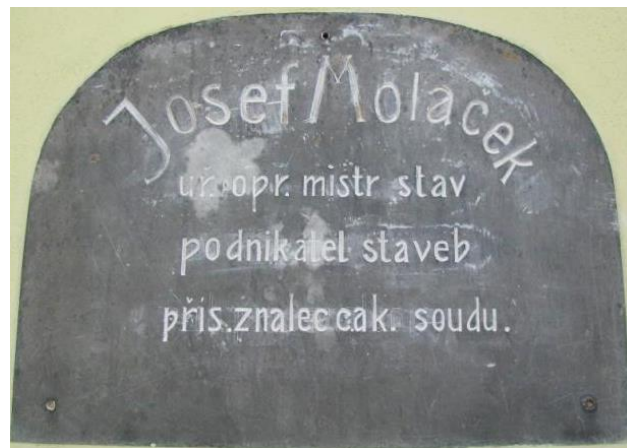 Josef Molacek
uř. opr. mistr stav
podnikatel staveb
přís. znalec c.a k. soudu.